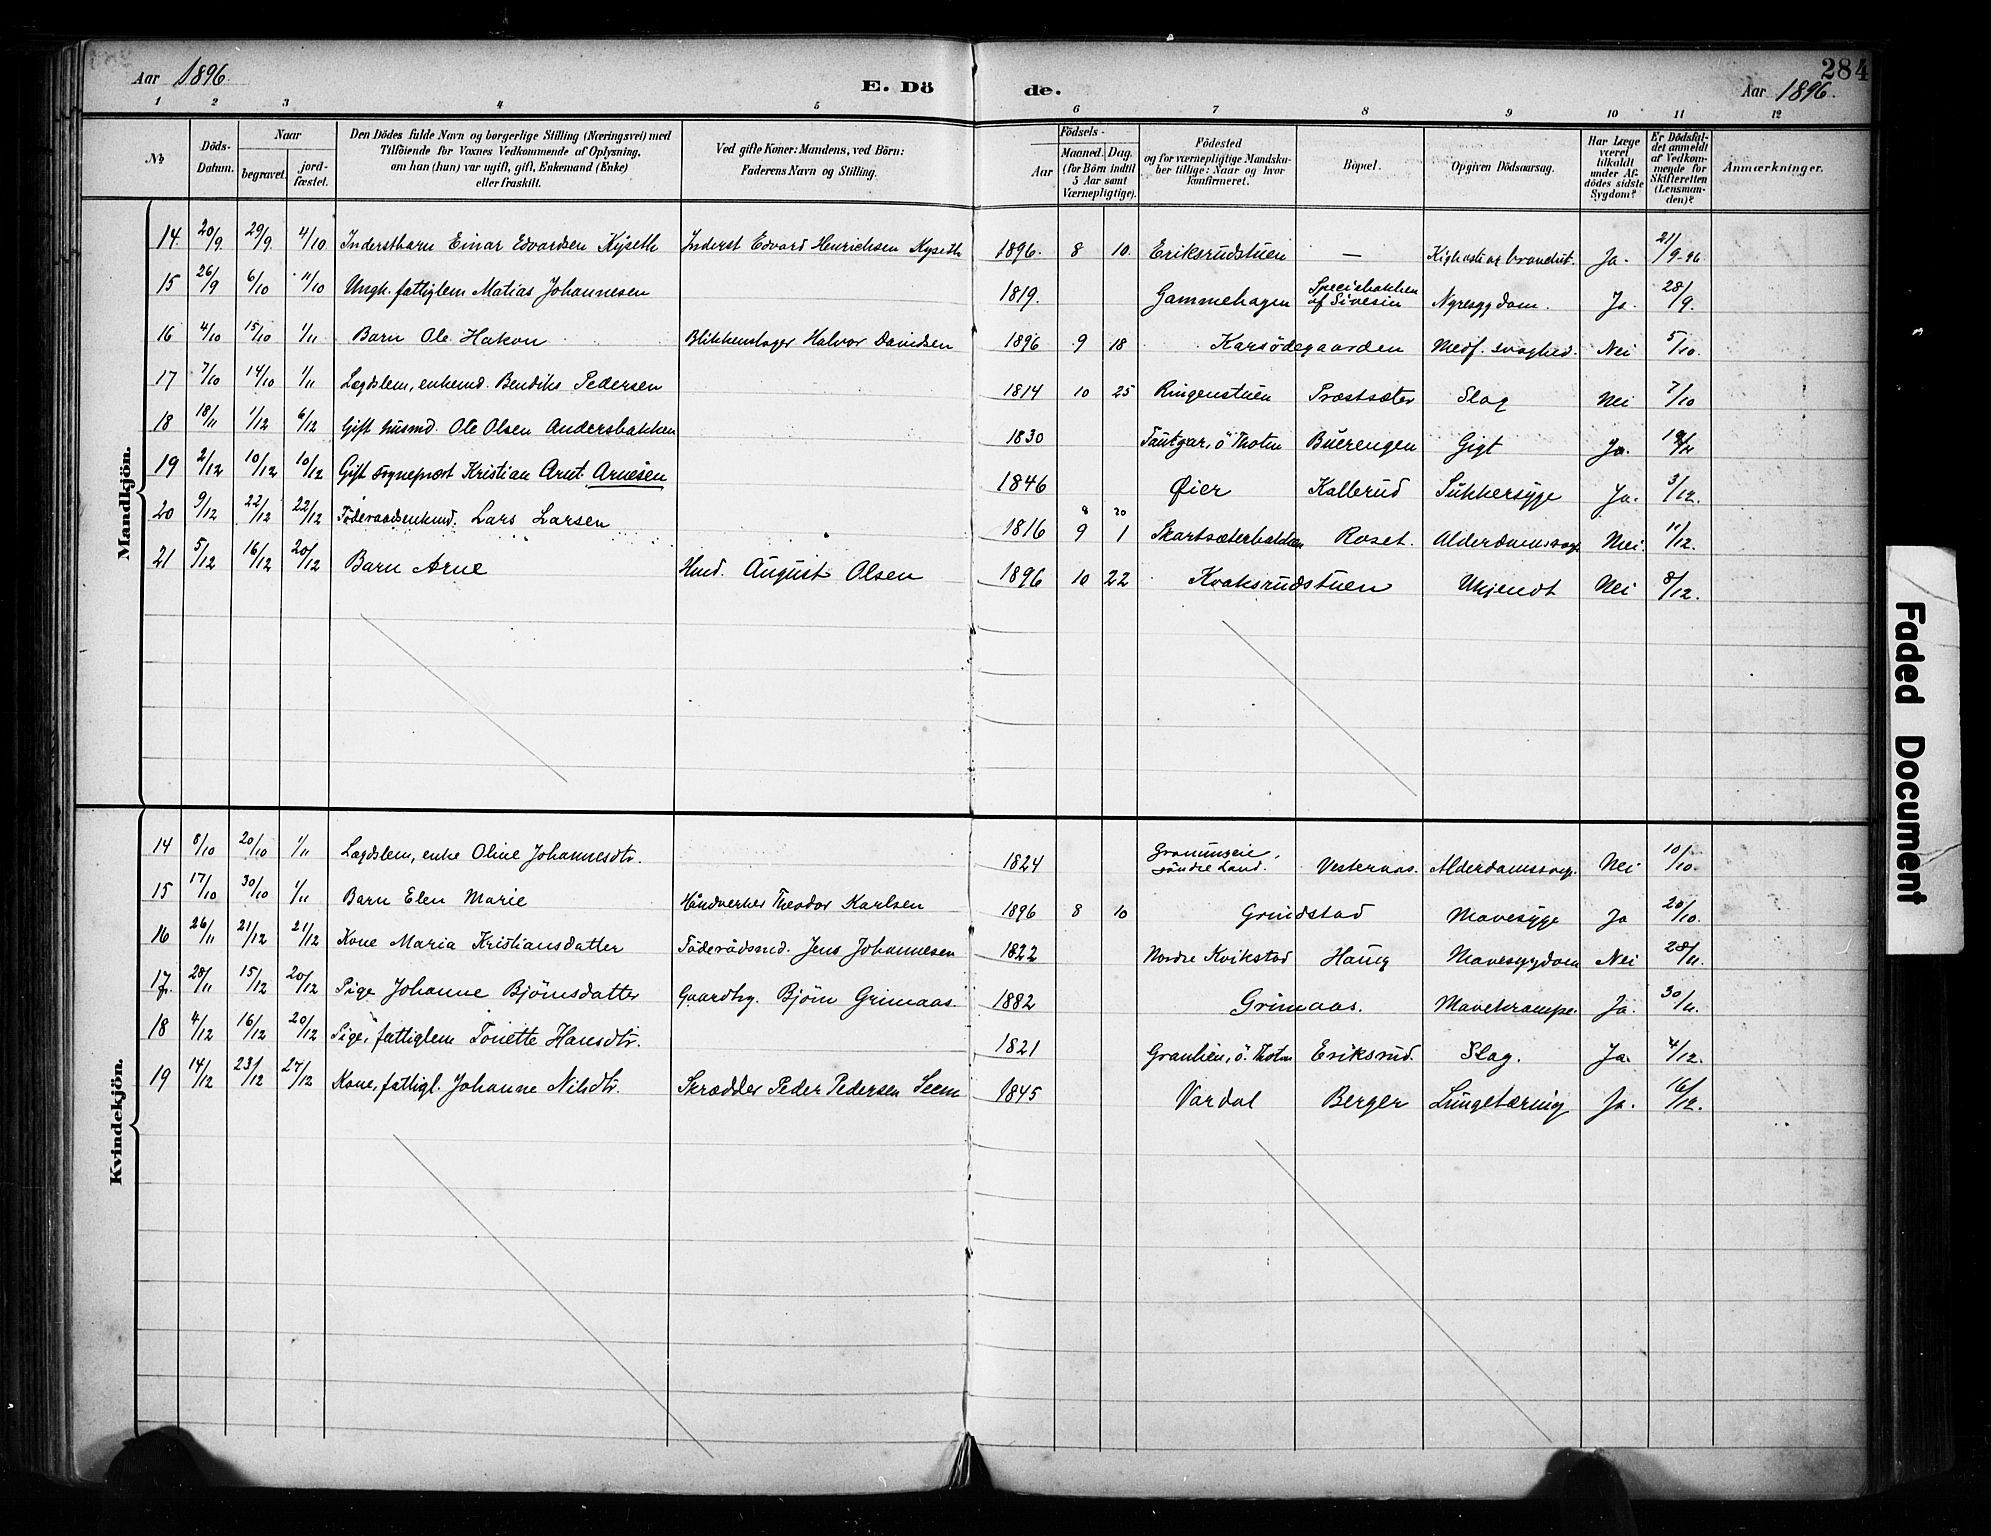 284
Aar 1896.
E. Dö de.
Aar 1896.
1 2 3 4 5 6 7 8 9 10 11 12
No
Döds-Datum.
Naar
begravet.
jord-fæstet.
Den Dödes fulde Navn og borgerlige Stilling (Næringsvei) med
Tilföiende for Voxnes Vedkommende af Oplysning,
om han (hun) var ugift, gift, Enkemand (Enke)
eller fraskilt.
Ved gifte Koner: Mandens, ved Börn:
Faderens Navn og Stilling.
Födsels-
Aar
Maaned. Dag.
(for Börn indtil
5 Aar samt
Værnepligtige).
Födested
og for værnepligtige Mandska-
ber tillige: Naar og hvor
konfirmeret.
Bopæl.
Opgiven Dödsaarsag.
Har Læge
været
tilkaldt
under Af-
dödes sidste
Sygdom?
Er Dödsfal-
det anmeldt
af Vedkom-
mende for
Skifteretten
(Lensman-
den)?
Anmærkninger.
Mandkjön.
14 20/9 29/9 4/10 Inderstbarn Einar Edvardsen Kyseth Inderst Edvard Henrichsen Kyseth 1896. 8 10. Eriksrudstuen — Ja. 21/9 96
15 26/9 6/10 11/10 Ungk. fattiglem Matias Johannesen 1819. Gammehagen Speciebakken af Sivesin Nyresygdom. Ja. 28/9.
16 4/10 15/10 1/11 Barn Ole Hakon Blikkenslager Halvor Davidsen 1896 9 18 Karsödegaarden Medf. svaghed. Nei 5/10.
17 7/10 14/10 1/11 Lægdslem, enkemd. Bendiks Pedersen 1814 10 25 Ringenstuen Præstsæter Slag Nei 7/10
18 18/11 1/12 6/12 Gift husmd. Ole Olsen Andersbakken 1830 ö Thotn Buerengen Gigt Ja.
19 2/12 10/12 10/12 Gift sogneprest Kristian Arnt Arnesen 1846 Øier Kallerud Sukkersyge Ja. 3/12.
20 9/12 22/12 22/12 Föderaadsenkmd. Lars Larsen 1816 8 20 9 1 Skartsæterbakken Roset. Alderdomssvagh. Nei. 11/12.
21 5/12 16/12 20/12 Barn Arne Hmd. August Olsen 1896 10 22 Kvaksrudstuen Ukjendt Nei 8/12.
Kvindekjön.
14 8/10 20/10 1/11 Lægdslem, enke Oline Johannesdtr. 1824 söndre Land. Vesteraas. Alderdomssvagh. Nei 10/10.
15 17/10 30/10 1/11 Barn Elen Marie Håndverker Theodor Karlsen 1896 8 10 Grindstad Mavesyge Ja 20/10.
16 26/11 21/12 21/12 Kone Maria Kristiansdatter Föderådsmd. Jens Johannesen 1822 Nordre Kvikstad Haug Mavesygdom Nei 28/11.
17. 28/11 15/12 20/12 Pige Johanne Bjömsdatter Gaardbr. Bjöm Grimaas. 1882 Grimaas. Mavekrampe. Ja. 30/11.
18 4/12 16/12 20/12 Pige, fattiglem Tonette Hansdtr. 1821 Granlien, ö. Thotn Eriksrud. Slag. Ja. 4/12.
19 14/12 23/12 27/12 Kone, fattigl. Johanne Nilsdtr. Skrædder Peder Pedersen Seem 1845 Vardal Berger Lungetæring Ja. 16/12.
Faded Document